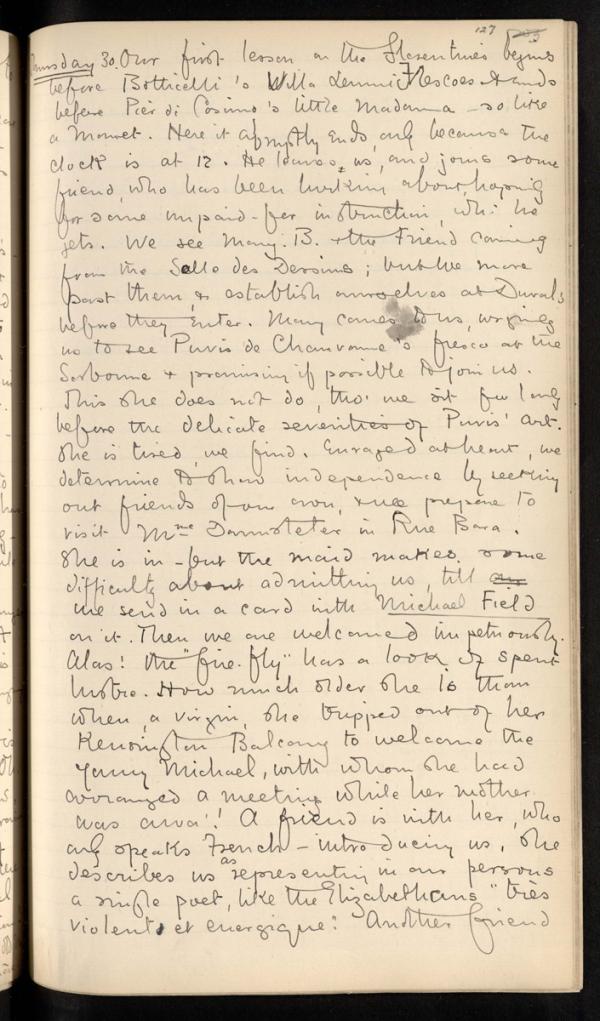 127
Thursday 30. Our first lesson on the Florentines begins
before Botticelli's Villa Lemmi Frescoes & ends
before Pier di Cosimo's little Madonna – so like
a Monet. Here it abruptly ends, only because the
clock is at 12. He leaves us, and joins some
friend, who has been lurking about, hoping
for some unpaid-for instruction, whi: he
gets. We see Mary. B. & the Friend coming
from the Salle des Dessins; but we move
past them, & establish ourselves at Duval's
before they enter. Mary comes to us, urging
us to see Puvis de Chavanne's fresco at the
Sorbonne & promising if possible to join us.
This she does not do, tho' we sit for long
before the delicate severities of Puvis' art.
She is tired, we find. Enraged at heart, we
determine to show independence by seeking
out friends of our own, & we prepare to
visit Mme Darmsteter in Rue Bara.
She is in – but the maid makes some
difficulty about admitting us, till
we send in a card with Michael Field
on it. Then we are welcomed impetuously.
Alas! the "fire-fly" has a look of spent
lustre. How much older she is than
when, a virgin, she tripped out of her
Kensington Balcony to welcome the
young Michael, with whom she had
arranged a meeting while her mother
was away! A friend is with her, who
only speaks French – introducing us, she
describes us as representing in our persons
a single poet, like the Elizabethans "très
violent, et energique." Another friend